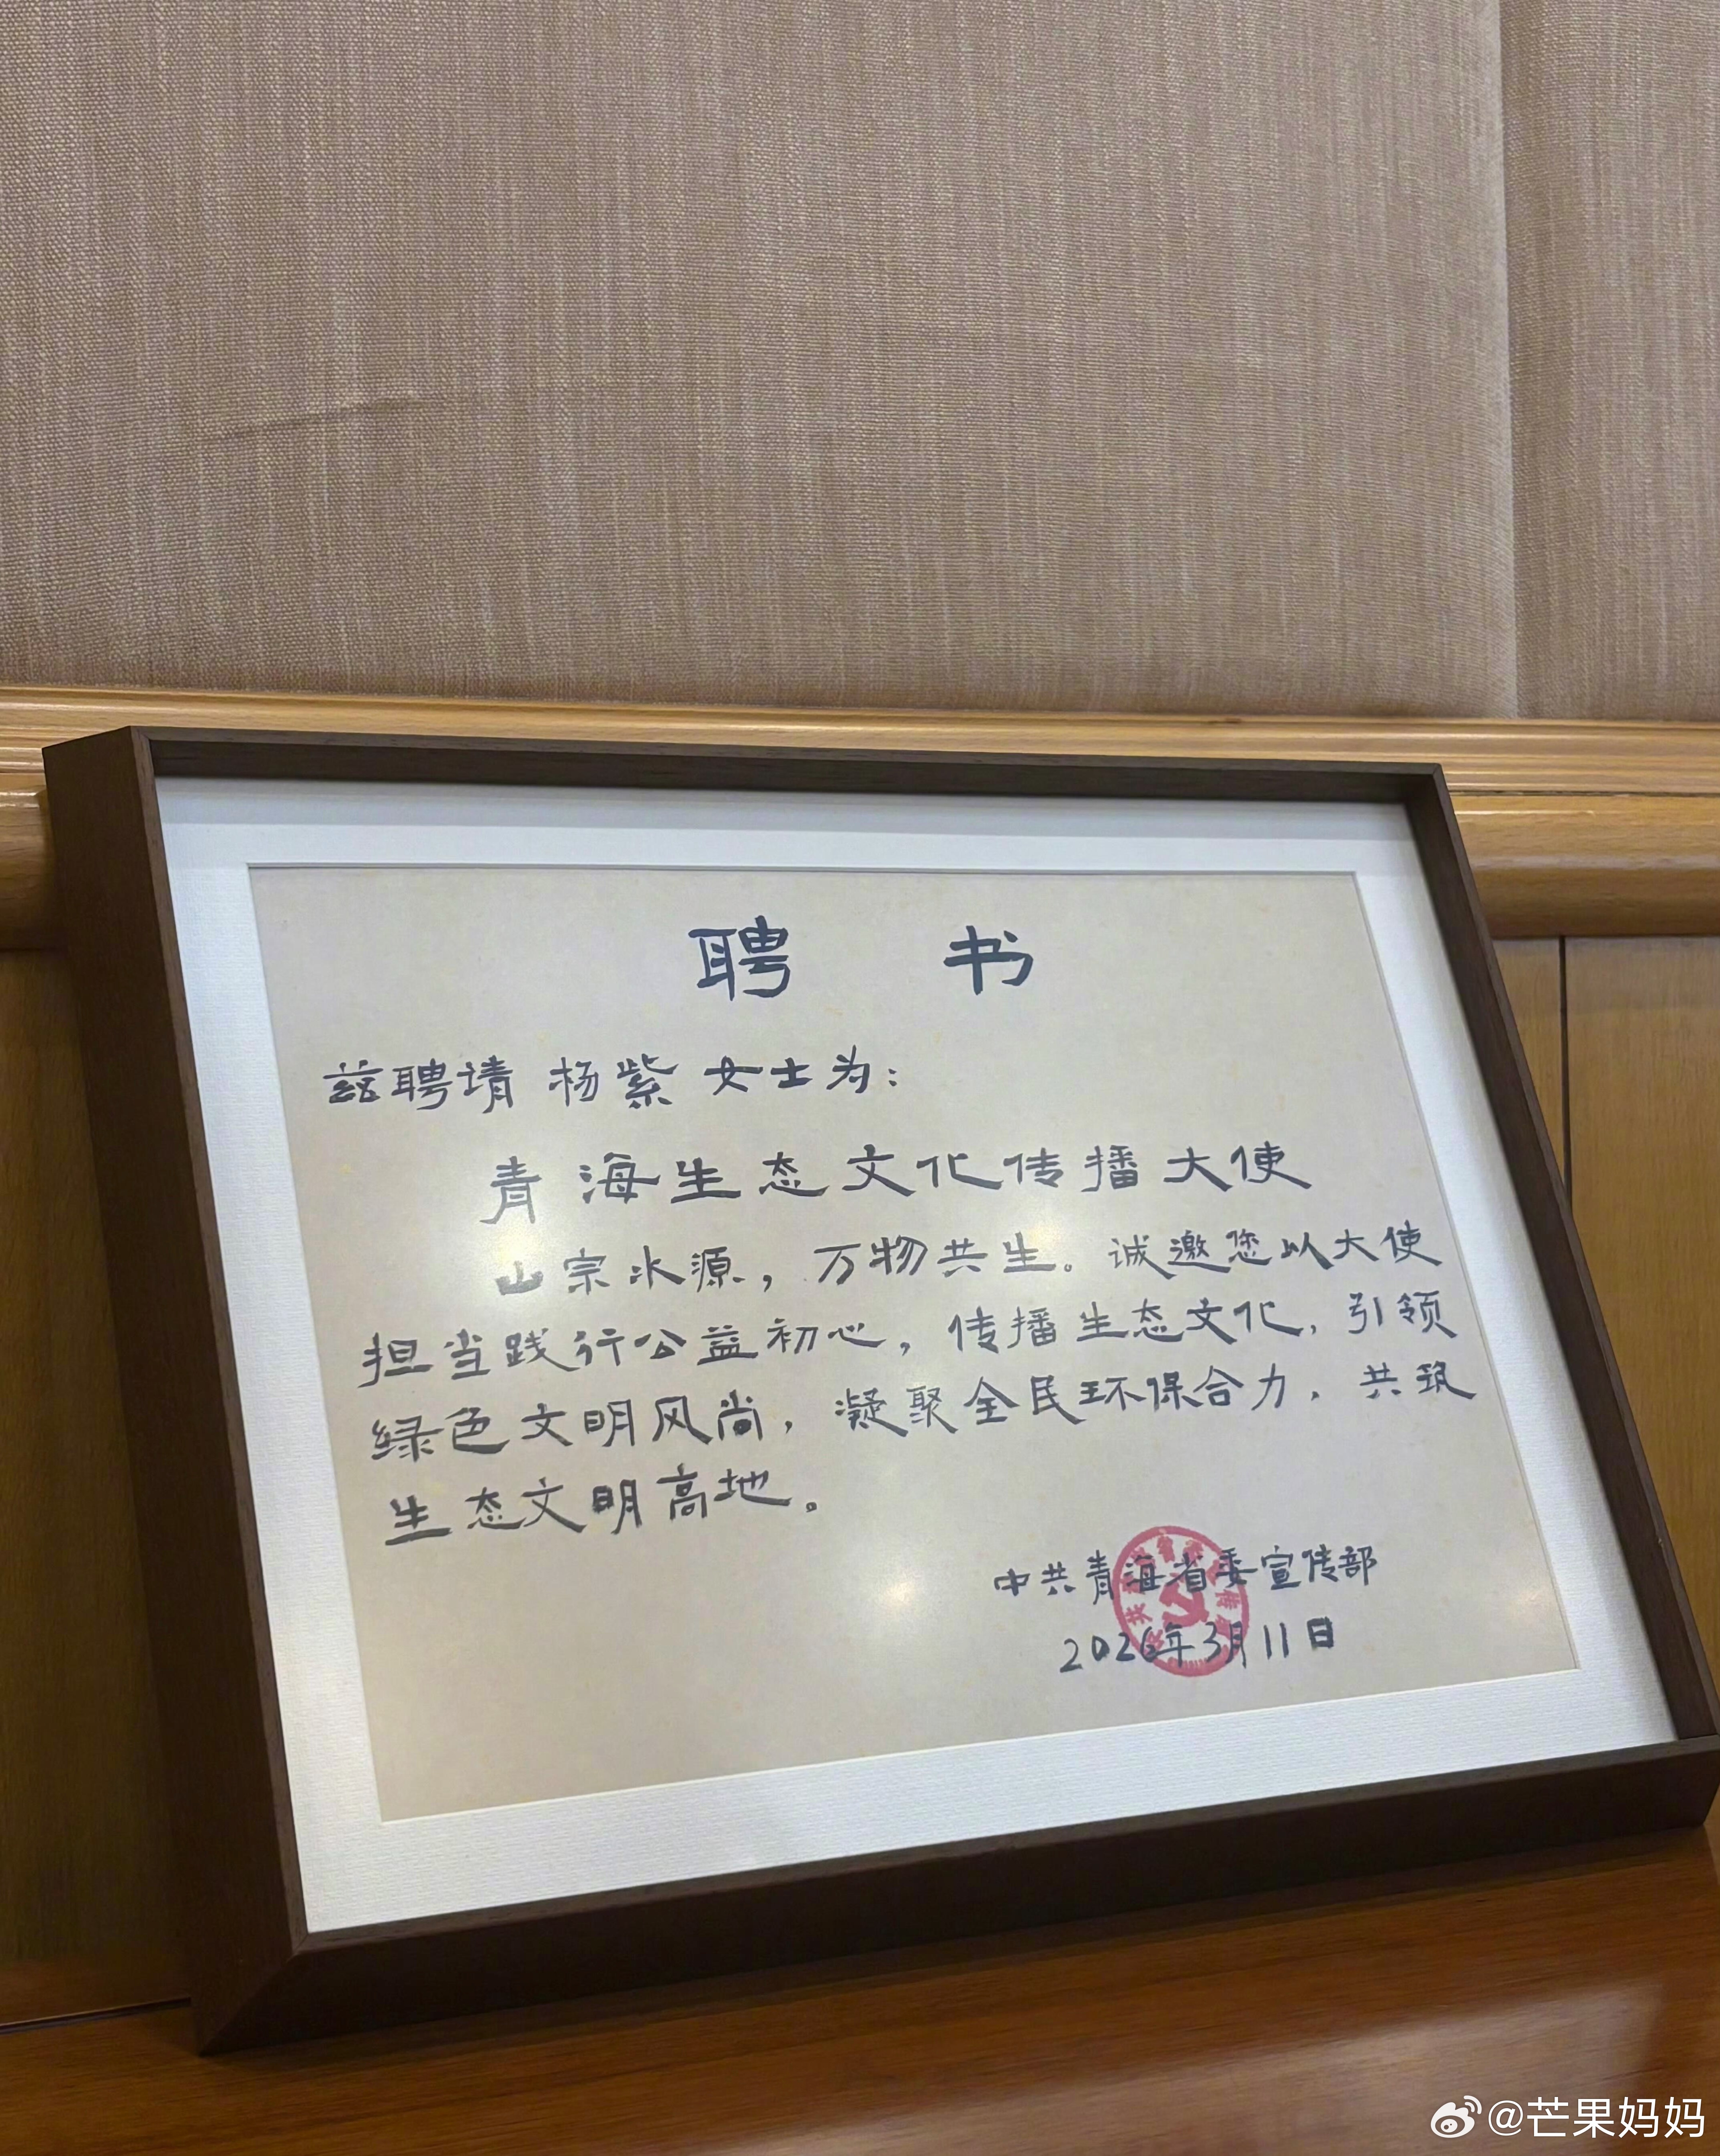 聘 书
兹聘请 杨紫 女士为：
青海生态文化传播大使
山宗水源，万物共生。诚邀您以大使
担当践行公益初心，传播生态文化，引领
绿色文明风尚，凝聚全民环保合力，共筑
生态文明高地。
中共青海省委宣传部
2026年3月11日
@芒果妈妈